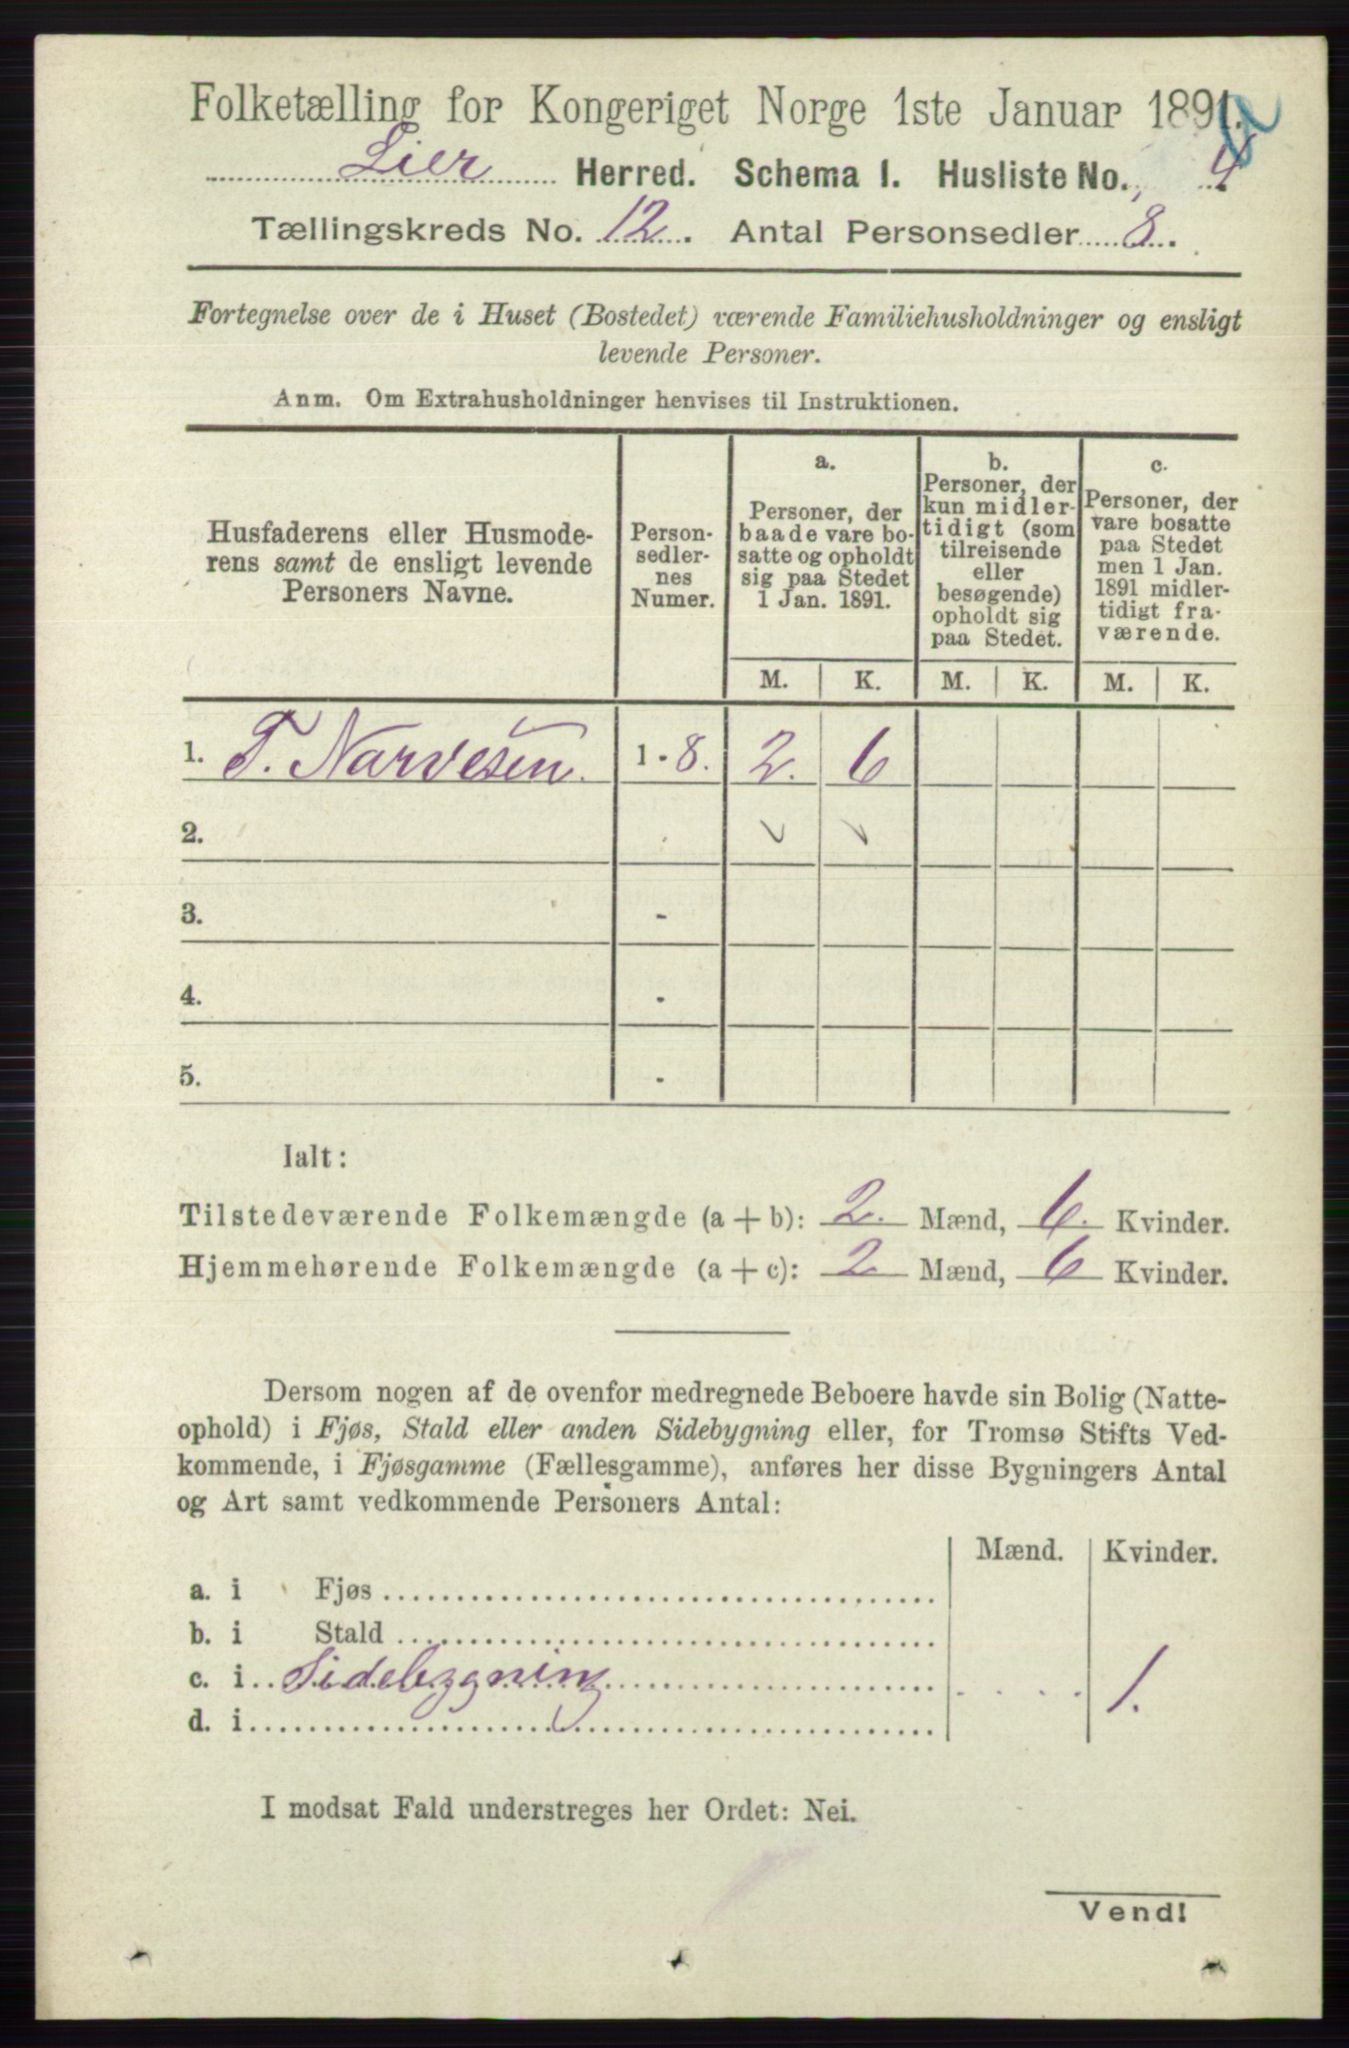 Folketælling for Kongeriget Norge 1ste Januar 1891.
Lier Herred. Schema I. Husliste No. 4
Tællingskreds No. 12. Antal Personsedler 8.
Fortegnelse over de i Huset (Bostedet) værende Familiehusholdninger og ensligt
levende Personer.
Anm. Om Extrahusholdninger henvises til Instruktionen.
Husfaderens eller Husmode-
rens samt de ensligt levende
Personers Navne.
Person-
sedler-
nes
Numer.
a.
Personer, der
baade vare bo-
satte og opholdt
sig paa Stedet
1 Jan. 1891.
b.
Personer, der
kun midler-
tidigt (som
tilreisende
eller
besøgende)
opholdt sig
paa Stedet.
c.
Personer, der
vare bosatte
paa Stedet
men 1 Jan.
1891 midler-
tidigt fra-
værende.
M. K. M. K. M. K.
1. T. Narvesen. 1 - 8. 2. 6
2.
3. -
4. -
5. -
Ialt:
Tilstedeværende Folkemængde (a + b): 2. Mænd, 6. Kvinder.
Hjemmehørende Folkemængde (a + c): 2 Mænd, 6 Kvinder.
Dersom nogen af de ovenfor medregnede Beboere havde sin Bolig (Natte-
ophold) i Fjøs, Stald eller anden Sidebygning eller, for Tromsø Stifts Ved-
kommende, i Fjøsgamme (Fællesgamme), anføres her disse Bygningers Antal
og Art samt vedkommende Personers Antal:
Mænd. Kvinder.
a. i Fjøs
b. i Stald
c. i Sidebygning 1.
d. i
I modsat Fald understreges her Ordet: Nei.
Vend!